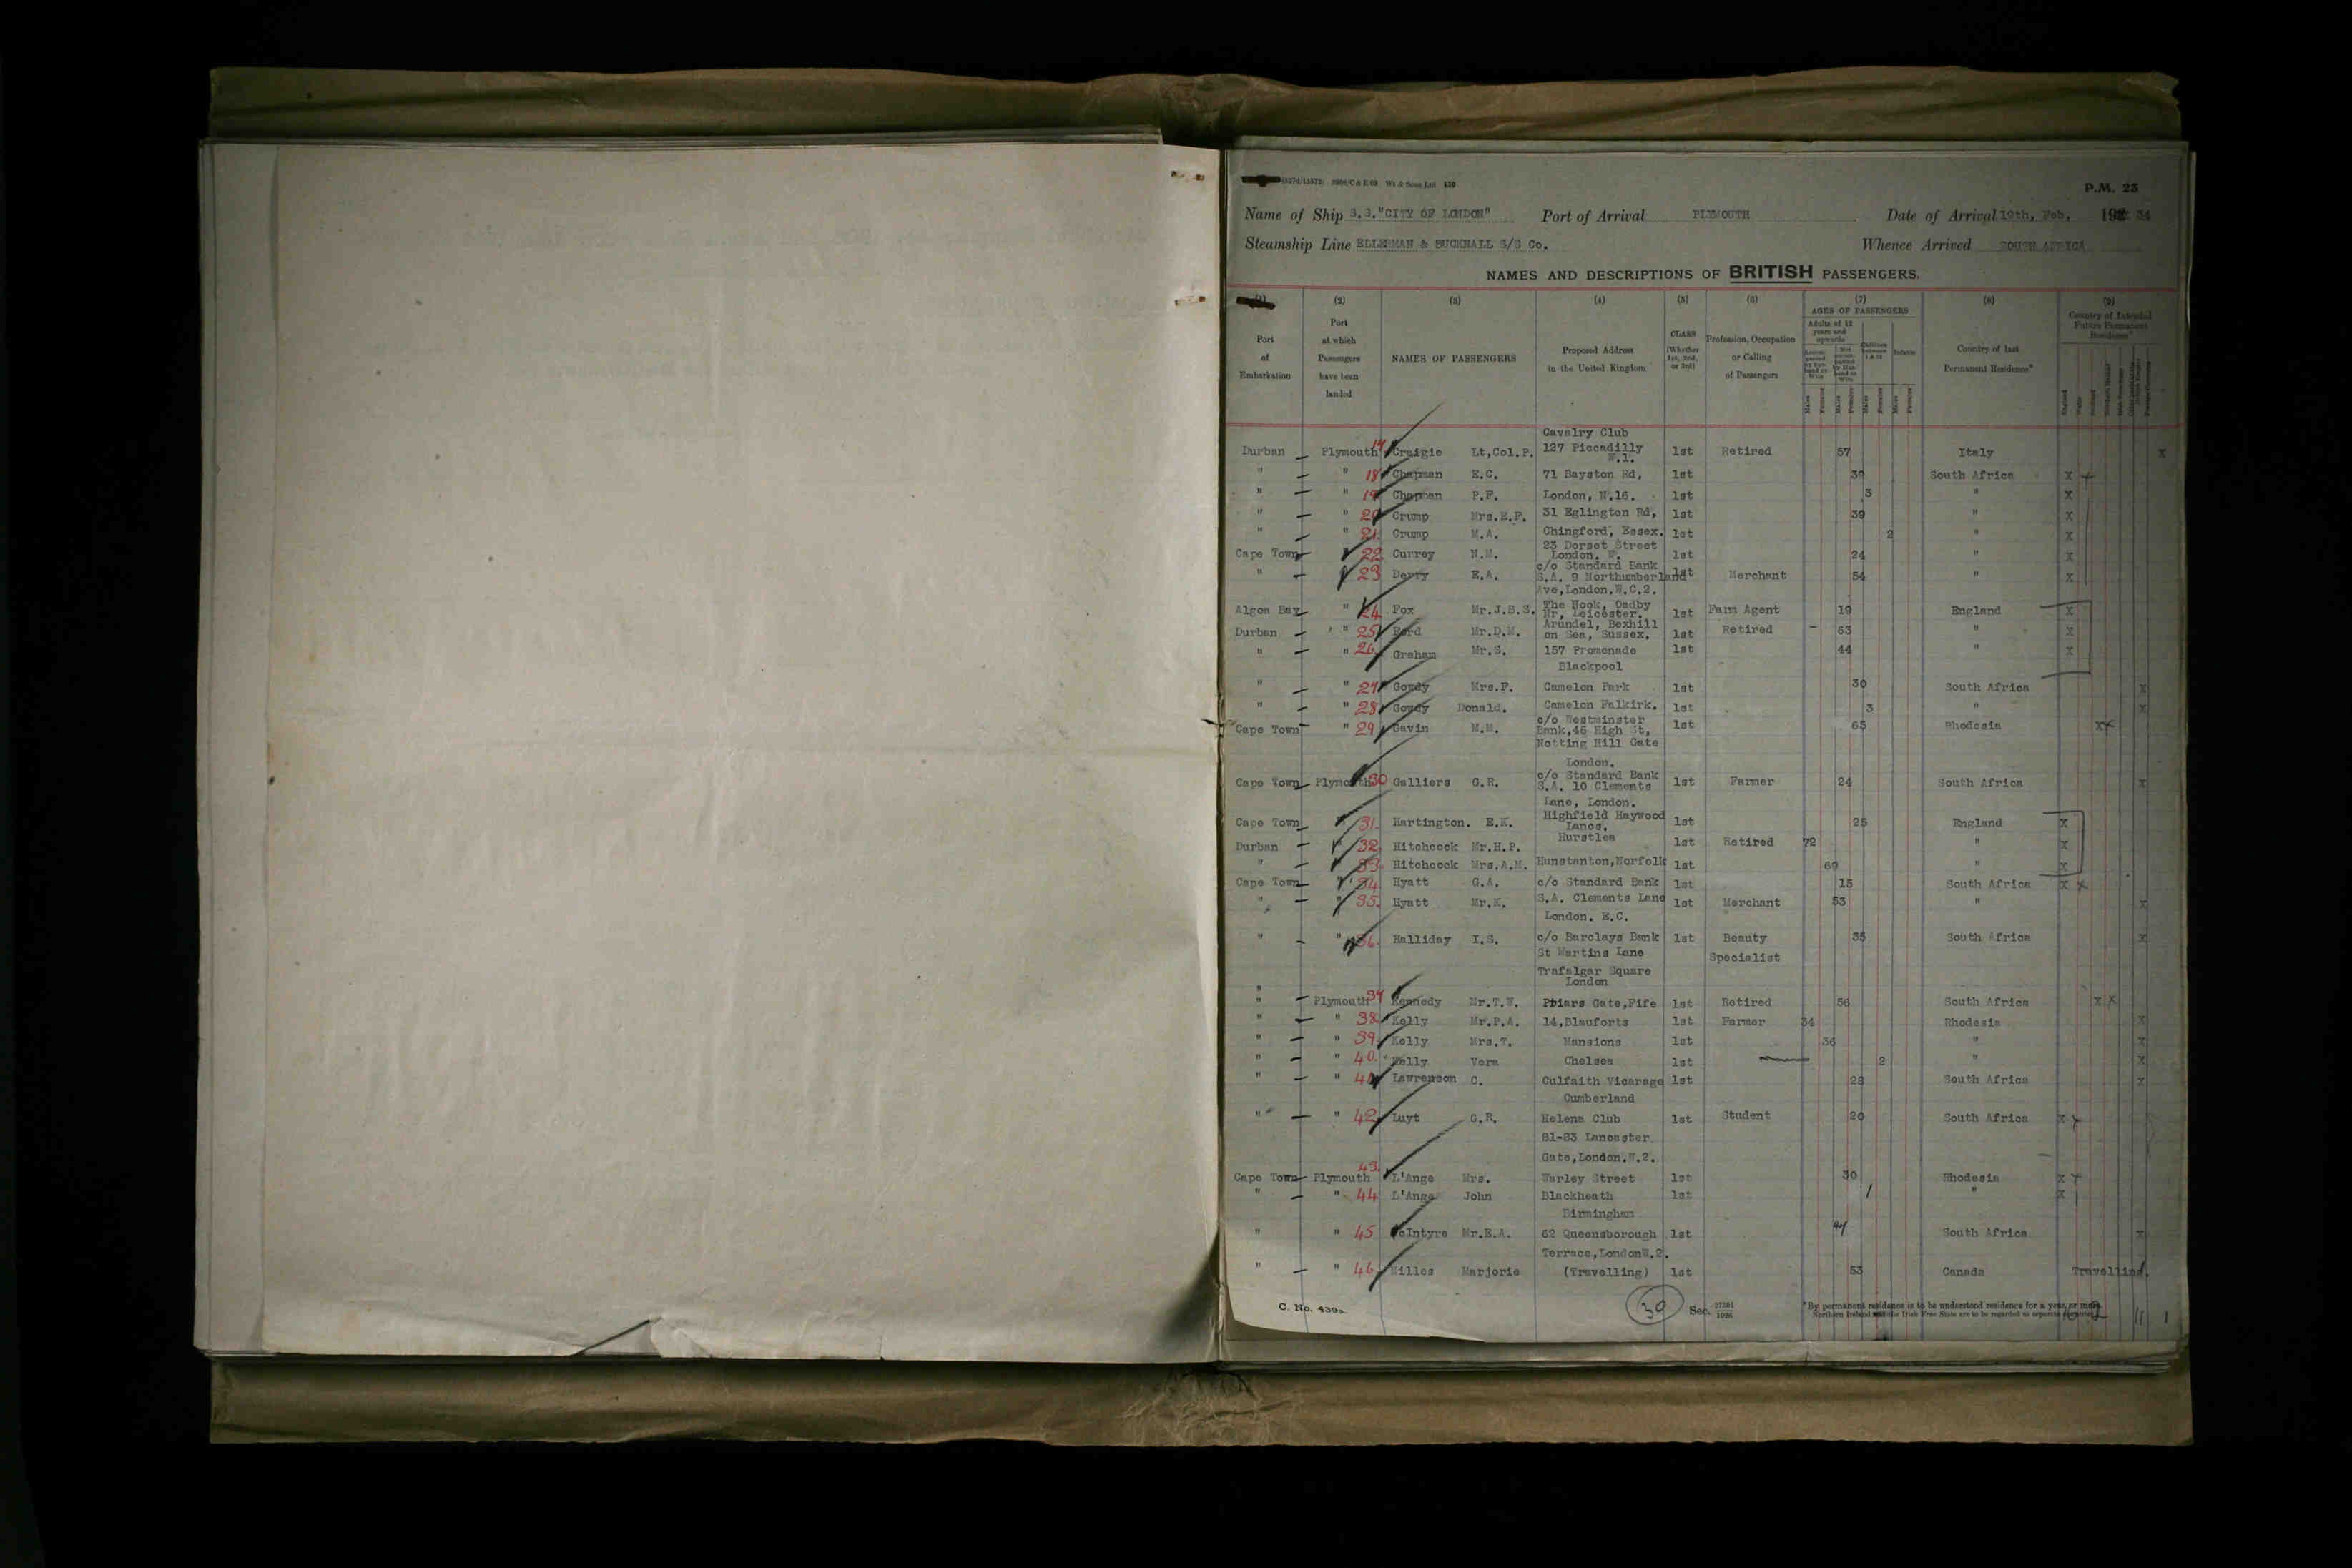 P.M. 23
Name of Ship S.S."CITY OF LONDON" Port of Arrival PLYMOUTH Date of Arrival 19th, Feb, 34
Steamship Line ELLERMAN & BUCKNALL S/S Co. Whence Arrived SOUTH AFRICA
NAMES AND DESCRIPTIONS OF BRITISH PASSENGERS.
(2) (3) (4) (5) (6) (7) (8) (9)
Port of Embarkation
Port at which Passengers have been landed
NAMES OF PASSENGERS
Proposed Address in the United Kingdom
CLASS (Whether 1st, 2nd, or 3rd)
Profession, Occupation or Calling of Passengers
AGES OF PASSENGERS
Adults of 12 years and upwards
Children between 1 & 12
Infants
Country of last Permanent Residence*
Country of Intended Future Permanent Residence*
Cavalry Club
Durban Plymouth Craigie Lt,Col.P. 127 Piccadilly 1st Retired 57 Italy x
W.1.
" " 18 Chapman E.C. 71 Bayston Rd, 1st 39 South Africa x
" " 19 Chapman P.F. London, N.16. 1st 3 " x
" " 20 Crump Mrs.E.F. 31 Eglington Rd, 1st 39 " x
" " 21 Crump M.A. Chingford, Essex. 1st 2 " x
23 Dorset Street
Cape Town " 22 Currey N.M. London. W. 1st 24 " x
c/o Standard Bank
" 23 Derry E.A. S.A. 9 Northumberland 1st Merchant 54 " x
Ave,London,W.C.2.
The Nook, Oadby
Algoa Bay " 24 Fox Mr.J.B.S. Nr, Leicester. 1st Farm Agent 19 England x
Arundel, Bexhill
Durban " 25 Ford Mr.D.M. on Sea, Sussex. 1st Retired 63 " x
" " 26 Graham Mr.S. 157 Promenade 1st 44 " x
Blackpool
" " 27 Gowdy Mrs.F. Camelon Park 1st 30 South Africa x
" " 28 Gowdy Donald. Camelon Falkirk. 1st 3 " x
c/o Westminster
Cape Town " 29 Gavin M.M. Bank,46 High St, 1st 65 Rhodesia x
Notting Hill Gate
London.
c/o Standard Bank
Cape Town Plymouth 30 Galliers G.R. S.A. 10 Clements 1st Farmer 24 South Africa x
Lane, London.
Highfield Haywood
Cape Town " 31. Hartington. E.K. Lancs. 1st 25 England x
Hurstlea
Durban " 32. Hitchcock Mr.H.P. 1st Retired 72 " x
" " 33. Hitchcock Mrs.A.M. Hunstanton,Norfolk 1st 69 " x
Cape Town " 34. Hyatt G.A. c/o Standard Bank 1st 15 South Africa x
" " 35. Hyatt Mr.K. S.A. Clements Lane 1st Merchant 53 " x
London. E.C.
" " 36. Halliday I.S. c/o Barclays Bank 1st Beauty 35 South Africa x
St Martins Lane Specialist
Trafalgar Square
London
" Plymouth 37 Kennedy Mr.T.W. Gate,Fife 1st Retired 56 South Africa x x
" " 38 Kelly Mr.P.A. 14,Blauforts 1st Farmer 34 Rhodesia x
" " 39. Kelly Mrs.T. Mansions 1st 36 " x
" " 40. Kelly Vera Chelsea 1st 2 " x
" " 41 Lawrenson C. Culfaith Vicarage 1st 28 South Africa x
Cumberland
" " 42 Luyt G.R. Helena Club 1st Student 20 South Africa x
81-83 Lancaster
Gate,London.W.2.
Cape Town Plymouth 43. L'Ange Mrs. Warley Street 1st 30 Rhodesia x
" " 44 L'Ange John Blackheath 1st 1 " x
Birmingham
" " 45 McIntyre Mr.E.A. 62 Queensborough 1st South Africa x
Terrace,LondonW.2.
" " 46 Milles Marjorie (Travelling) 1st 53 Canada Travelling.
C. No. 439a.
30
Sec. 27301 1926
*By permanent residence is to be understood residence for a year or more.
Northern Ireland and the Irish Free State are to be regarded as separate countries.
11 1